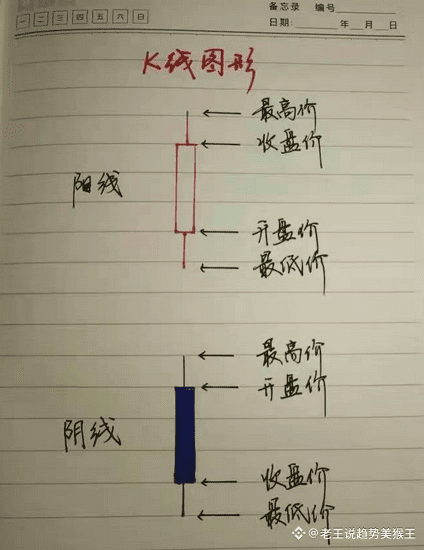 备忘录 编号
一 二 三 四 五 六 日 日期: 年 月 日
K线图形
最高价
收盘价
阳线
开盘价
最低价
最高价
开盘价
阴线
收盘价
最低价
老王说趋势美猴王